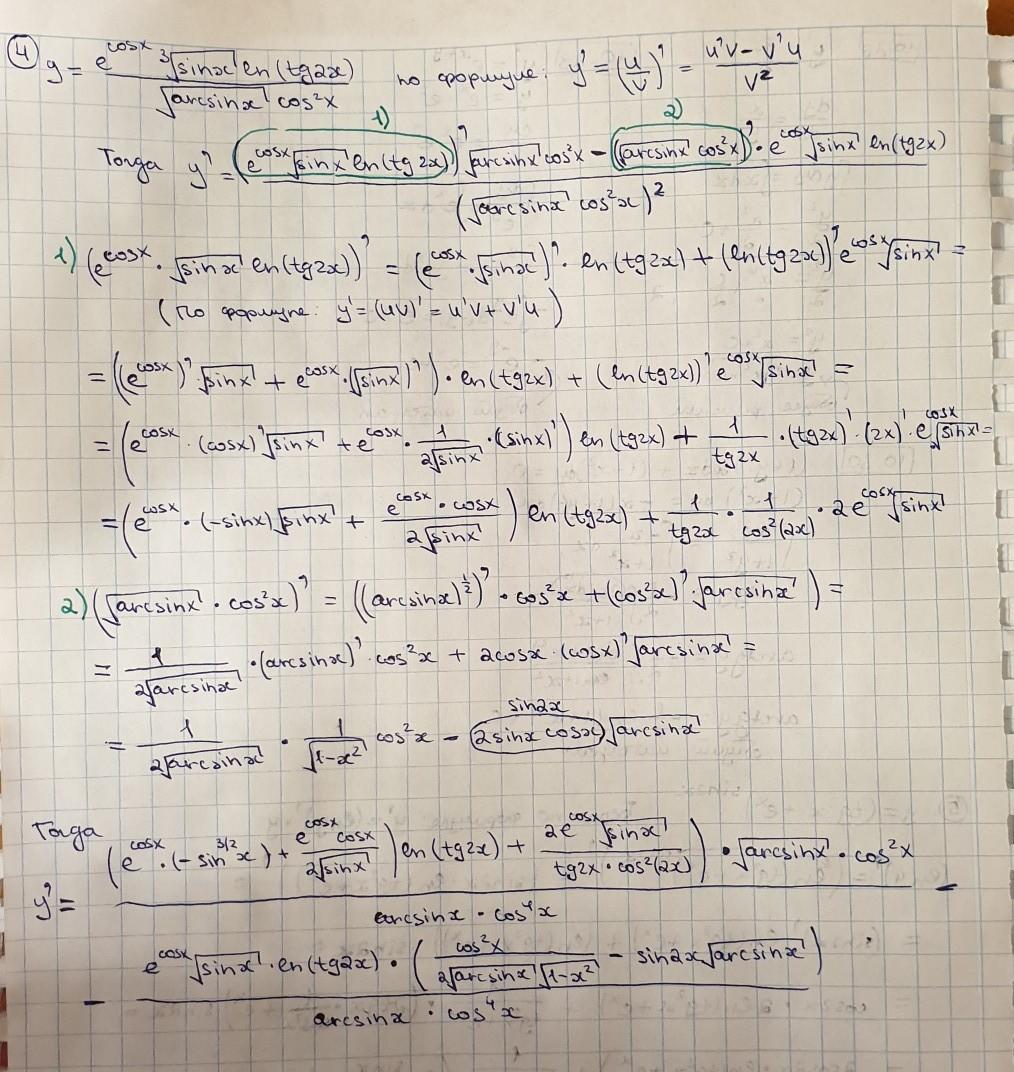 ④ y = e^cosx ³√sinx ln(tg2x) / √arcsinx cos²x по формуле: y' = (u/v)' = u'v - v'u / v²
1) 2)
Тогда y' = (e^cosx √sinx ln(tg2x))' √arcsinx cos²x - (√arcsinx cos²x)' · e^cosx √sinx ln(tg2x) / (√arcsinx cos²x)²
1) (e^cosx · √sinx ln(tg2x))' = (e^cosx · √sinx)' · ln(tg2x) + (ln(tg2x))' e^cosx √sinx =
(по формуле: y' = (uv)' = u'v + v'u)
= ((e^cosx)' · √sinx + e^cosx · (√sinx)') · ln(tg2x) + (ln(tg2x))' e^cosx √sinx =
= (e^cosx · (cosx)' √sinx + e^cosx · 1/2√sinx · (sinx)') ln(tg2x) + 1/tg2x · (tg2x)' · (2x)' · e^cosx √sinx =
= (e^cosx · (-sinx) √sinx + e^cosx · cosx / 2√sinx) ln(tg2x) + 1/tg2x · 1/cos²(2x) · 2e^cosx √sinx
2) (√arcsinx · cos²x)' = ((arcsinx)^½)' · cos²x + (cos²x)' · √arcsinx) =
= 1/2√arcsinx · (arcsinx)' · cos²x + 2cosx · (cosx)' √arcsinx =
sin2x
= 1/2√arcsinx · 1/√1-x² cos²x - 2sinx cosx √arcsinx
Тогда
y' = (e^cosx · (-sin^3/2 x) + e^cosx cosx / 2√sinx) ln(tg2x) + 2e^cosx √sinx / tg2x · cos²(2x)) · √arcsinx · cos²x / arcsinx · cos⁴x -
- e^cosx √sinx · ln(tg2x) · (cos²x / 2√arcsinx √1-x² - sin2x √arcsinx) / arcsinx · cos⁴x